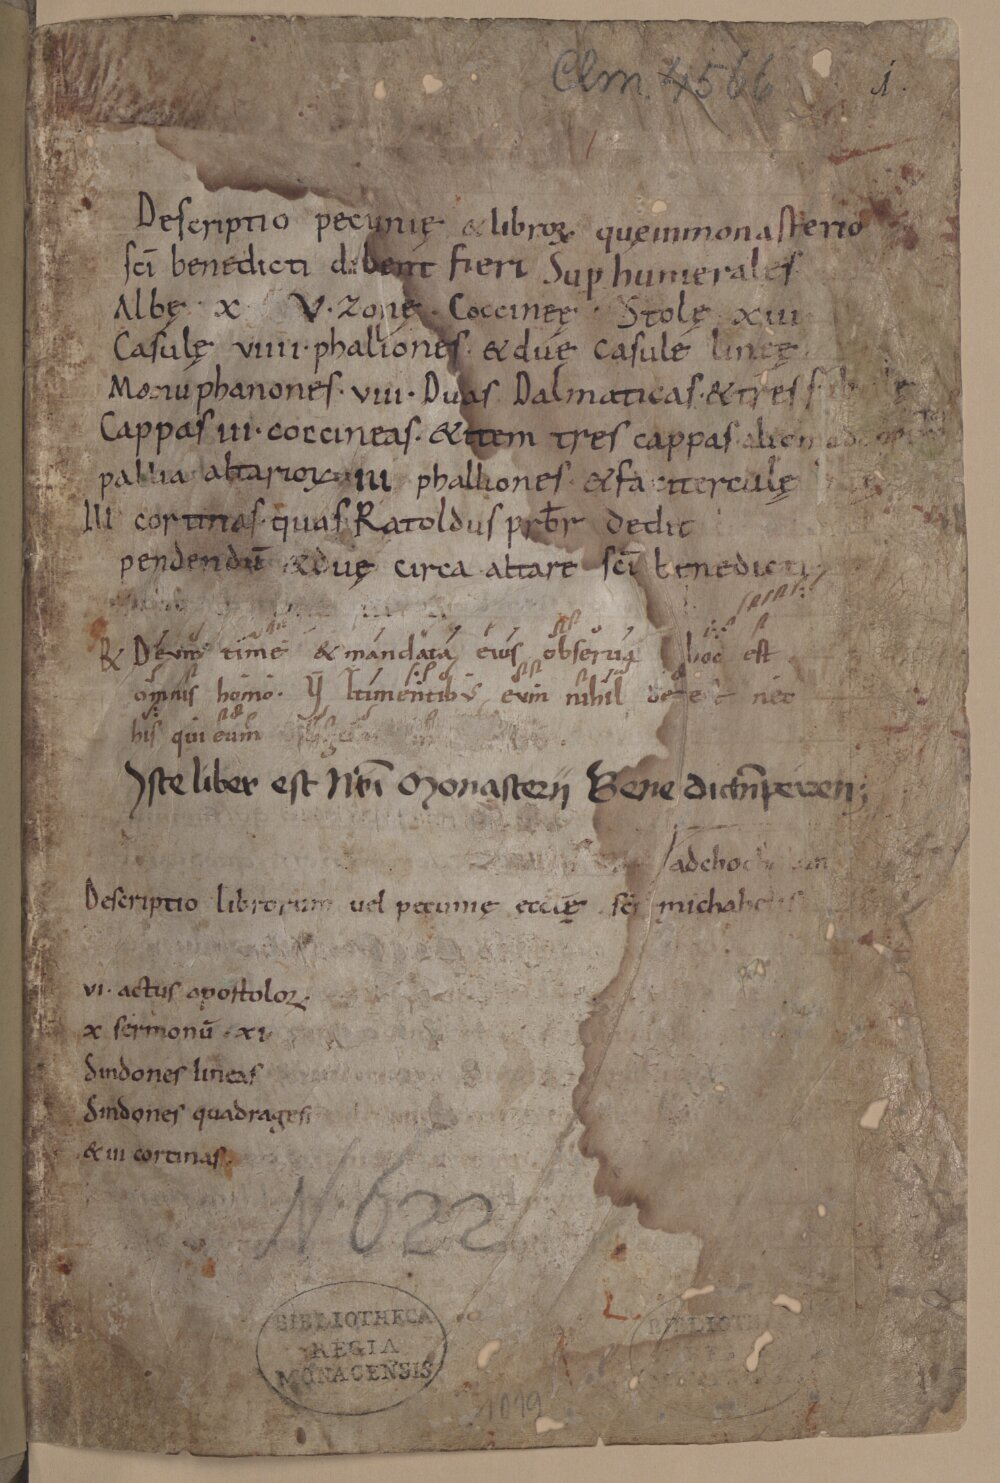 Clm. 4566
1.
Descriptio pecunię & libroꝝ quęinmonasterio
sc̄i benedicti debent fieri Suphumerales
Albę x V. Zonę. Coccineę. Stolę xiii
Casulę viiii. phaliones. & duę casulę lineę
phanones. viii. Duas Dalmaticas. & tres
Cappas iii. coccineas. & item tres cappas
pallia altarioꝝ iii phalliones. &
III cortinas. quas Ratoldus prb̄r dedit
pendendū & duę circa altare sc̄i benedicti
℞ Deum timé & mandata eius obserua hoc est
omnis homo. timentibus eum nihil deest nec
his qui eum
Iste liber est Nr̄i Monasterij
adehoc
Descriptio librorum uel pecunię ecclę sc̄i michahelis
vi. actus apostoloꝝ.
x sermonū. xi.
Sindones lineas
Sindones quadragesi
& iii cortinas.
N 622
BIBLIOTHECA
REGIA
MONACENSIS
1019